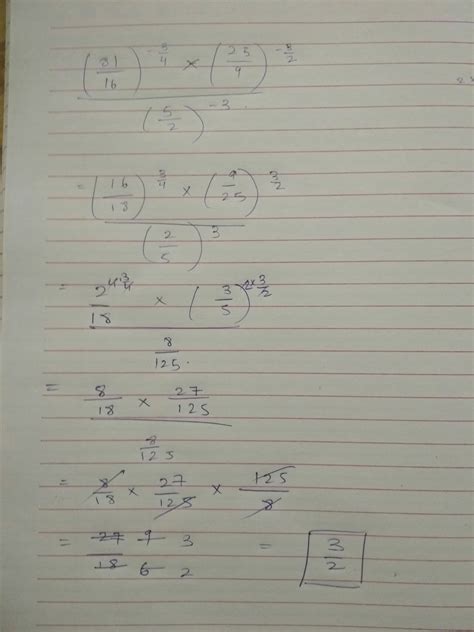 (81/16)^(-3/4) × (23/9)^(-3/2)
(5/2)^(-3)
= (16/18)^(3/4) × (9/25)^(3/2)
(2/5)^3
= 2^(4×3/4)/18 × (3/5)^(2×3/2)
8/125.
= 8/18 × 27/125
8/125
= 8/18 × 27/125 × 125/8
= 27/18 9/6 3/2 = 3/2